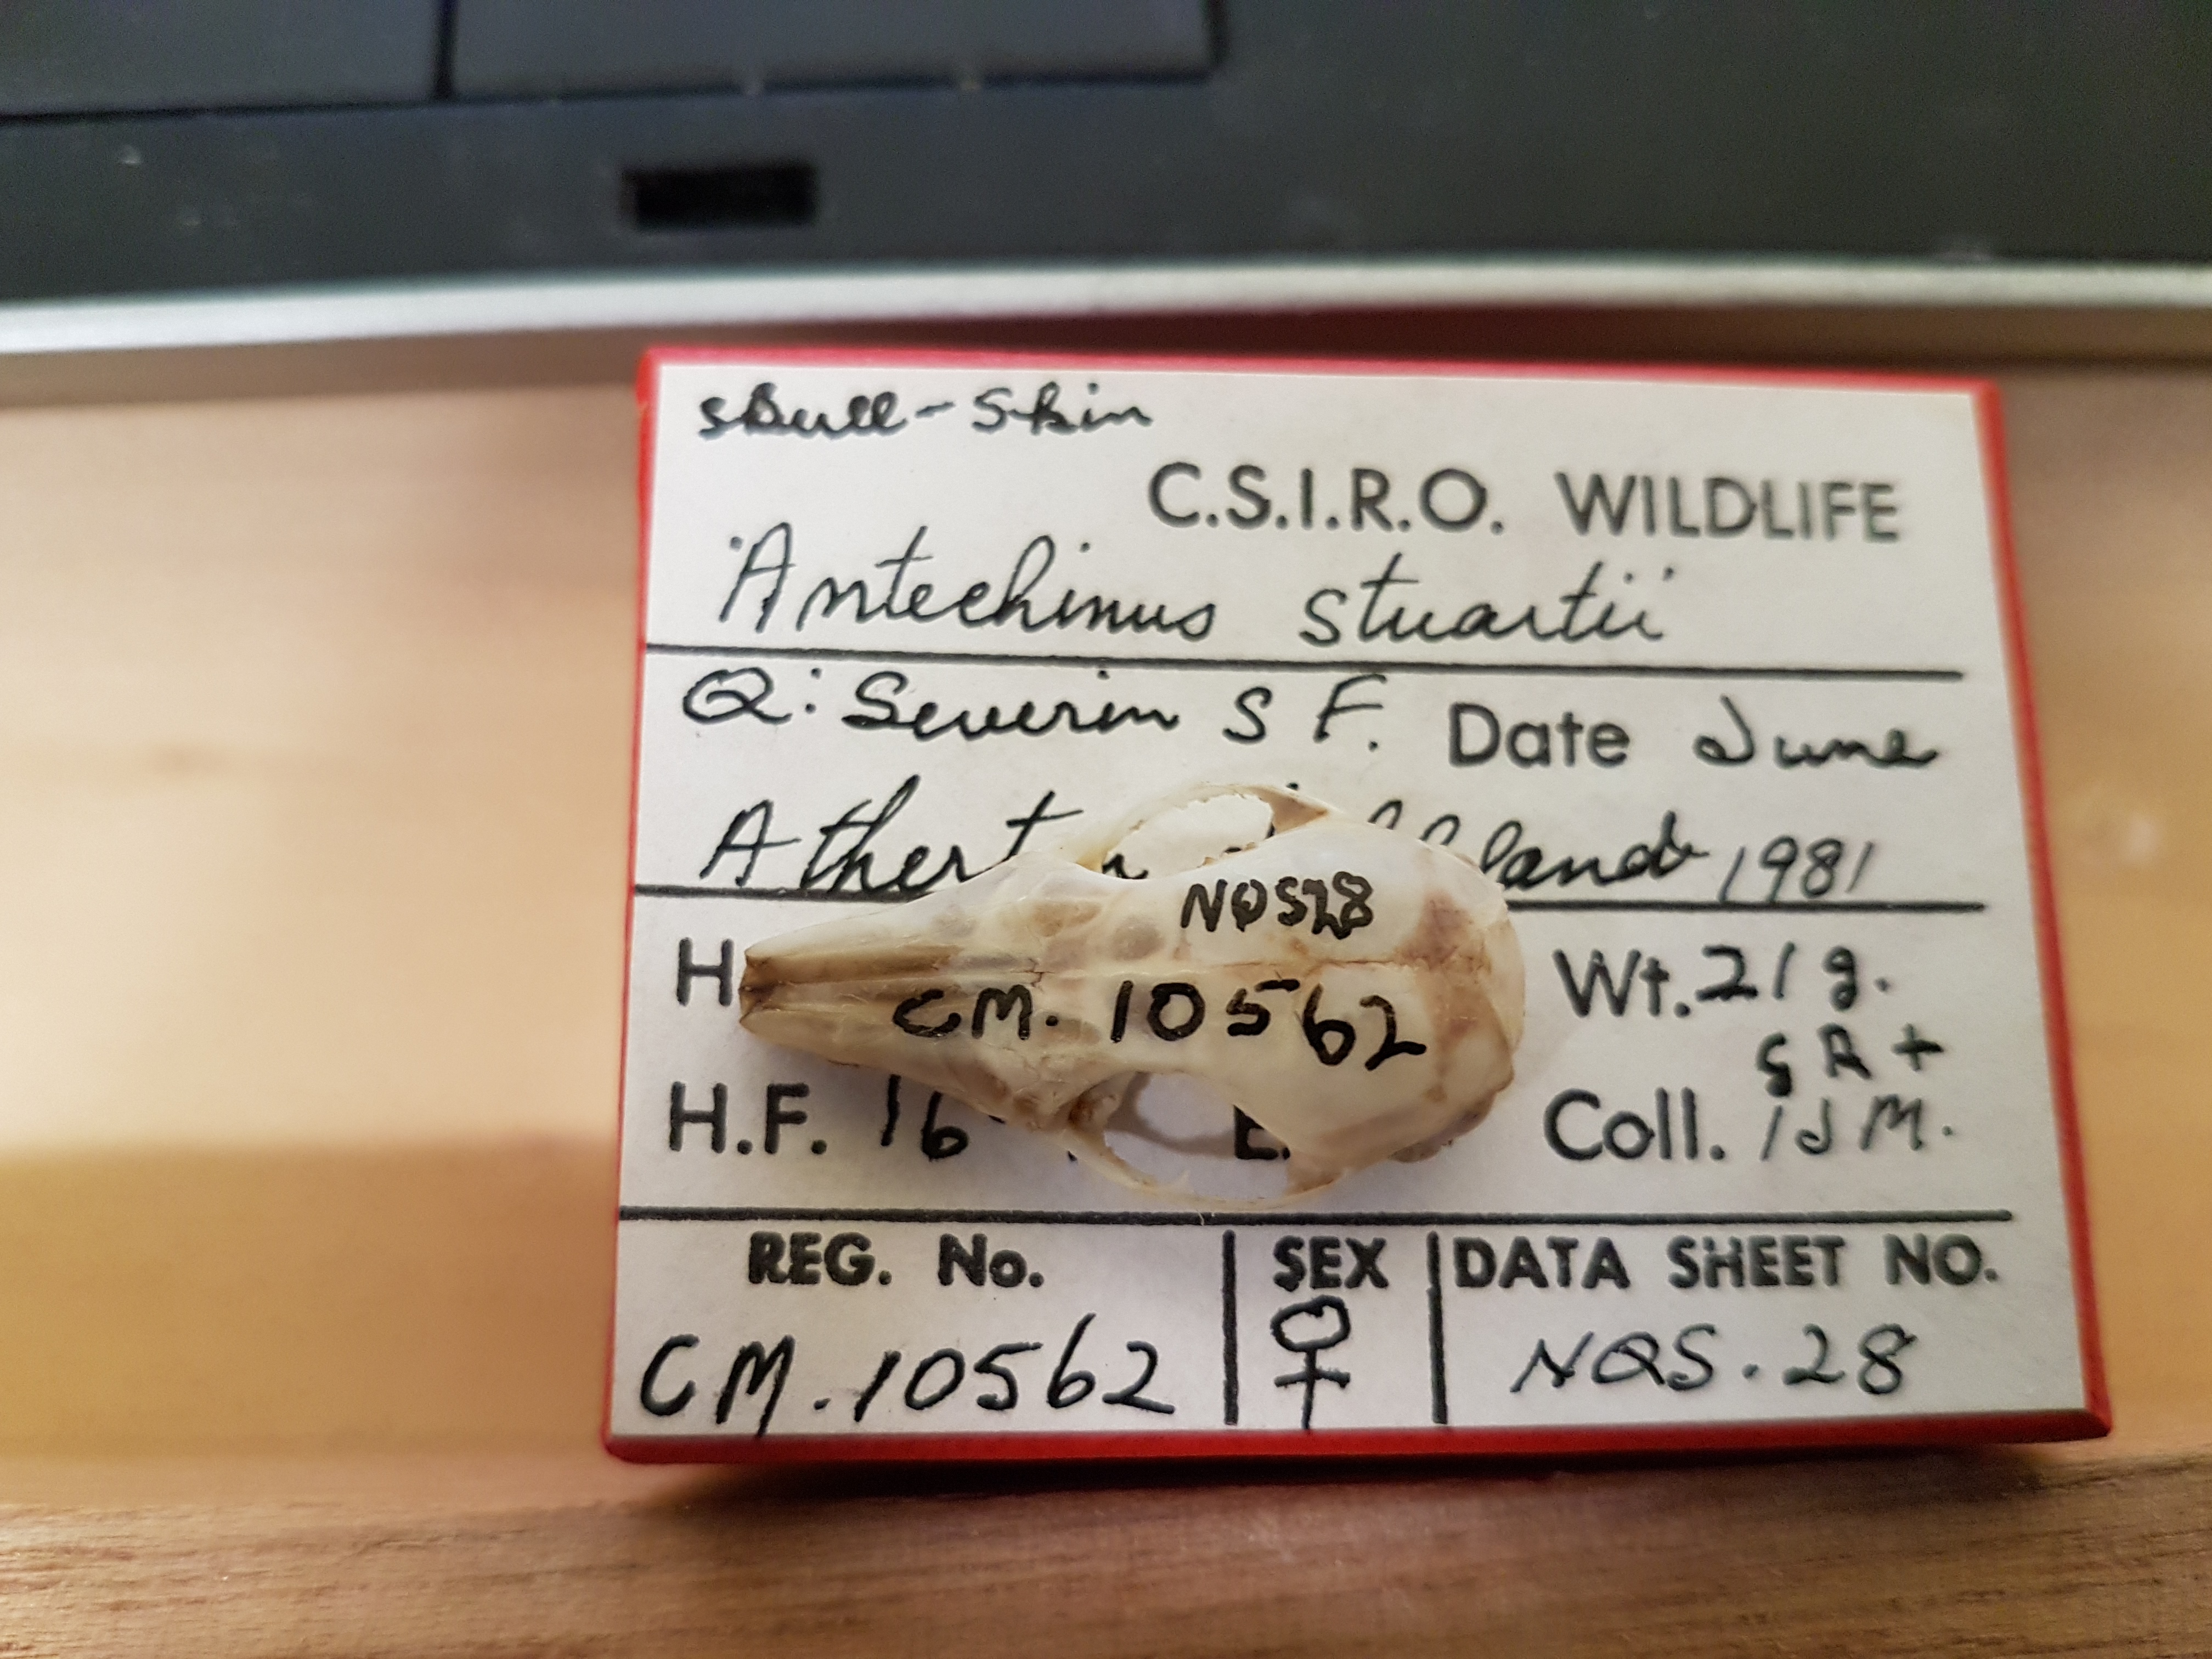 skull-skin
C.S.I.R.O. WILDLIFE
Antechinus stuartii
Q: Severin S F. Date June
Athert land 1981
H Wt. 21g.
H.F. 16 E. Coll. IJM. SR+
REG. No. SEX DATA SHEET NO.
CM.10562 ♀ NQS.28
NQS28
CM.10562